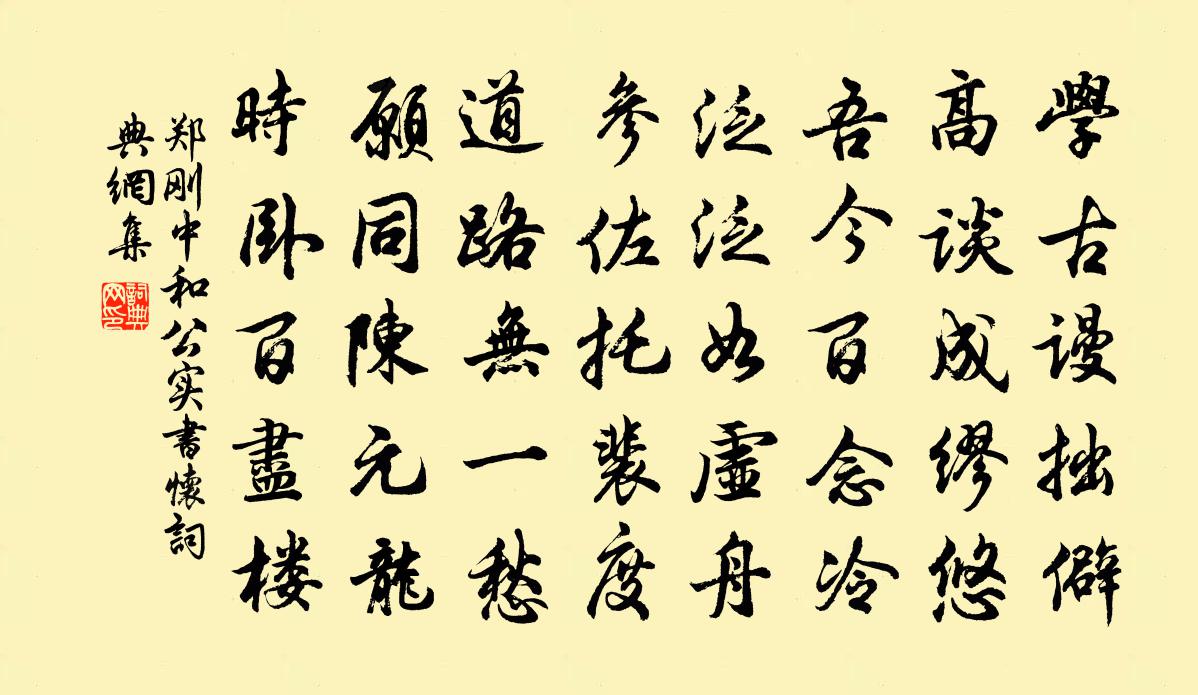 學古謾拙僻
高談成繆悠
吾今百念冷
泛泛如虛舟
參佐托裴度
道路無一愁
願同陳元龍
時卧百盡楼
郑刚中和公实書懷詞
典網集
詞典
网印